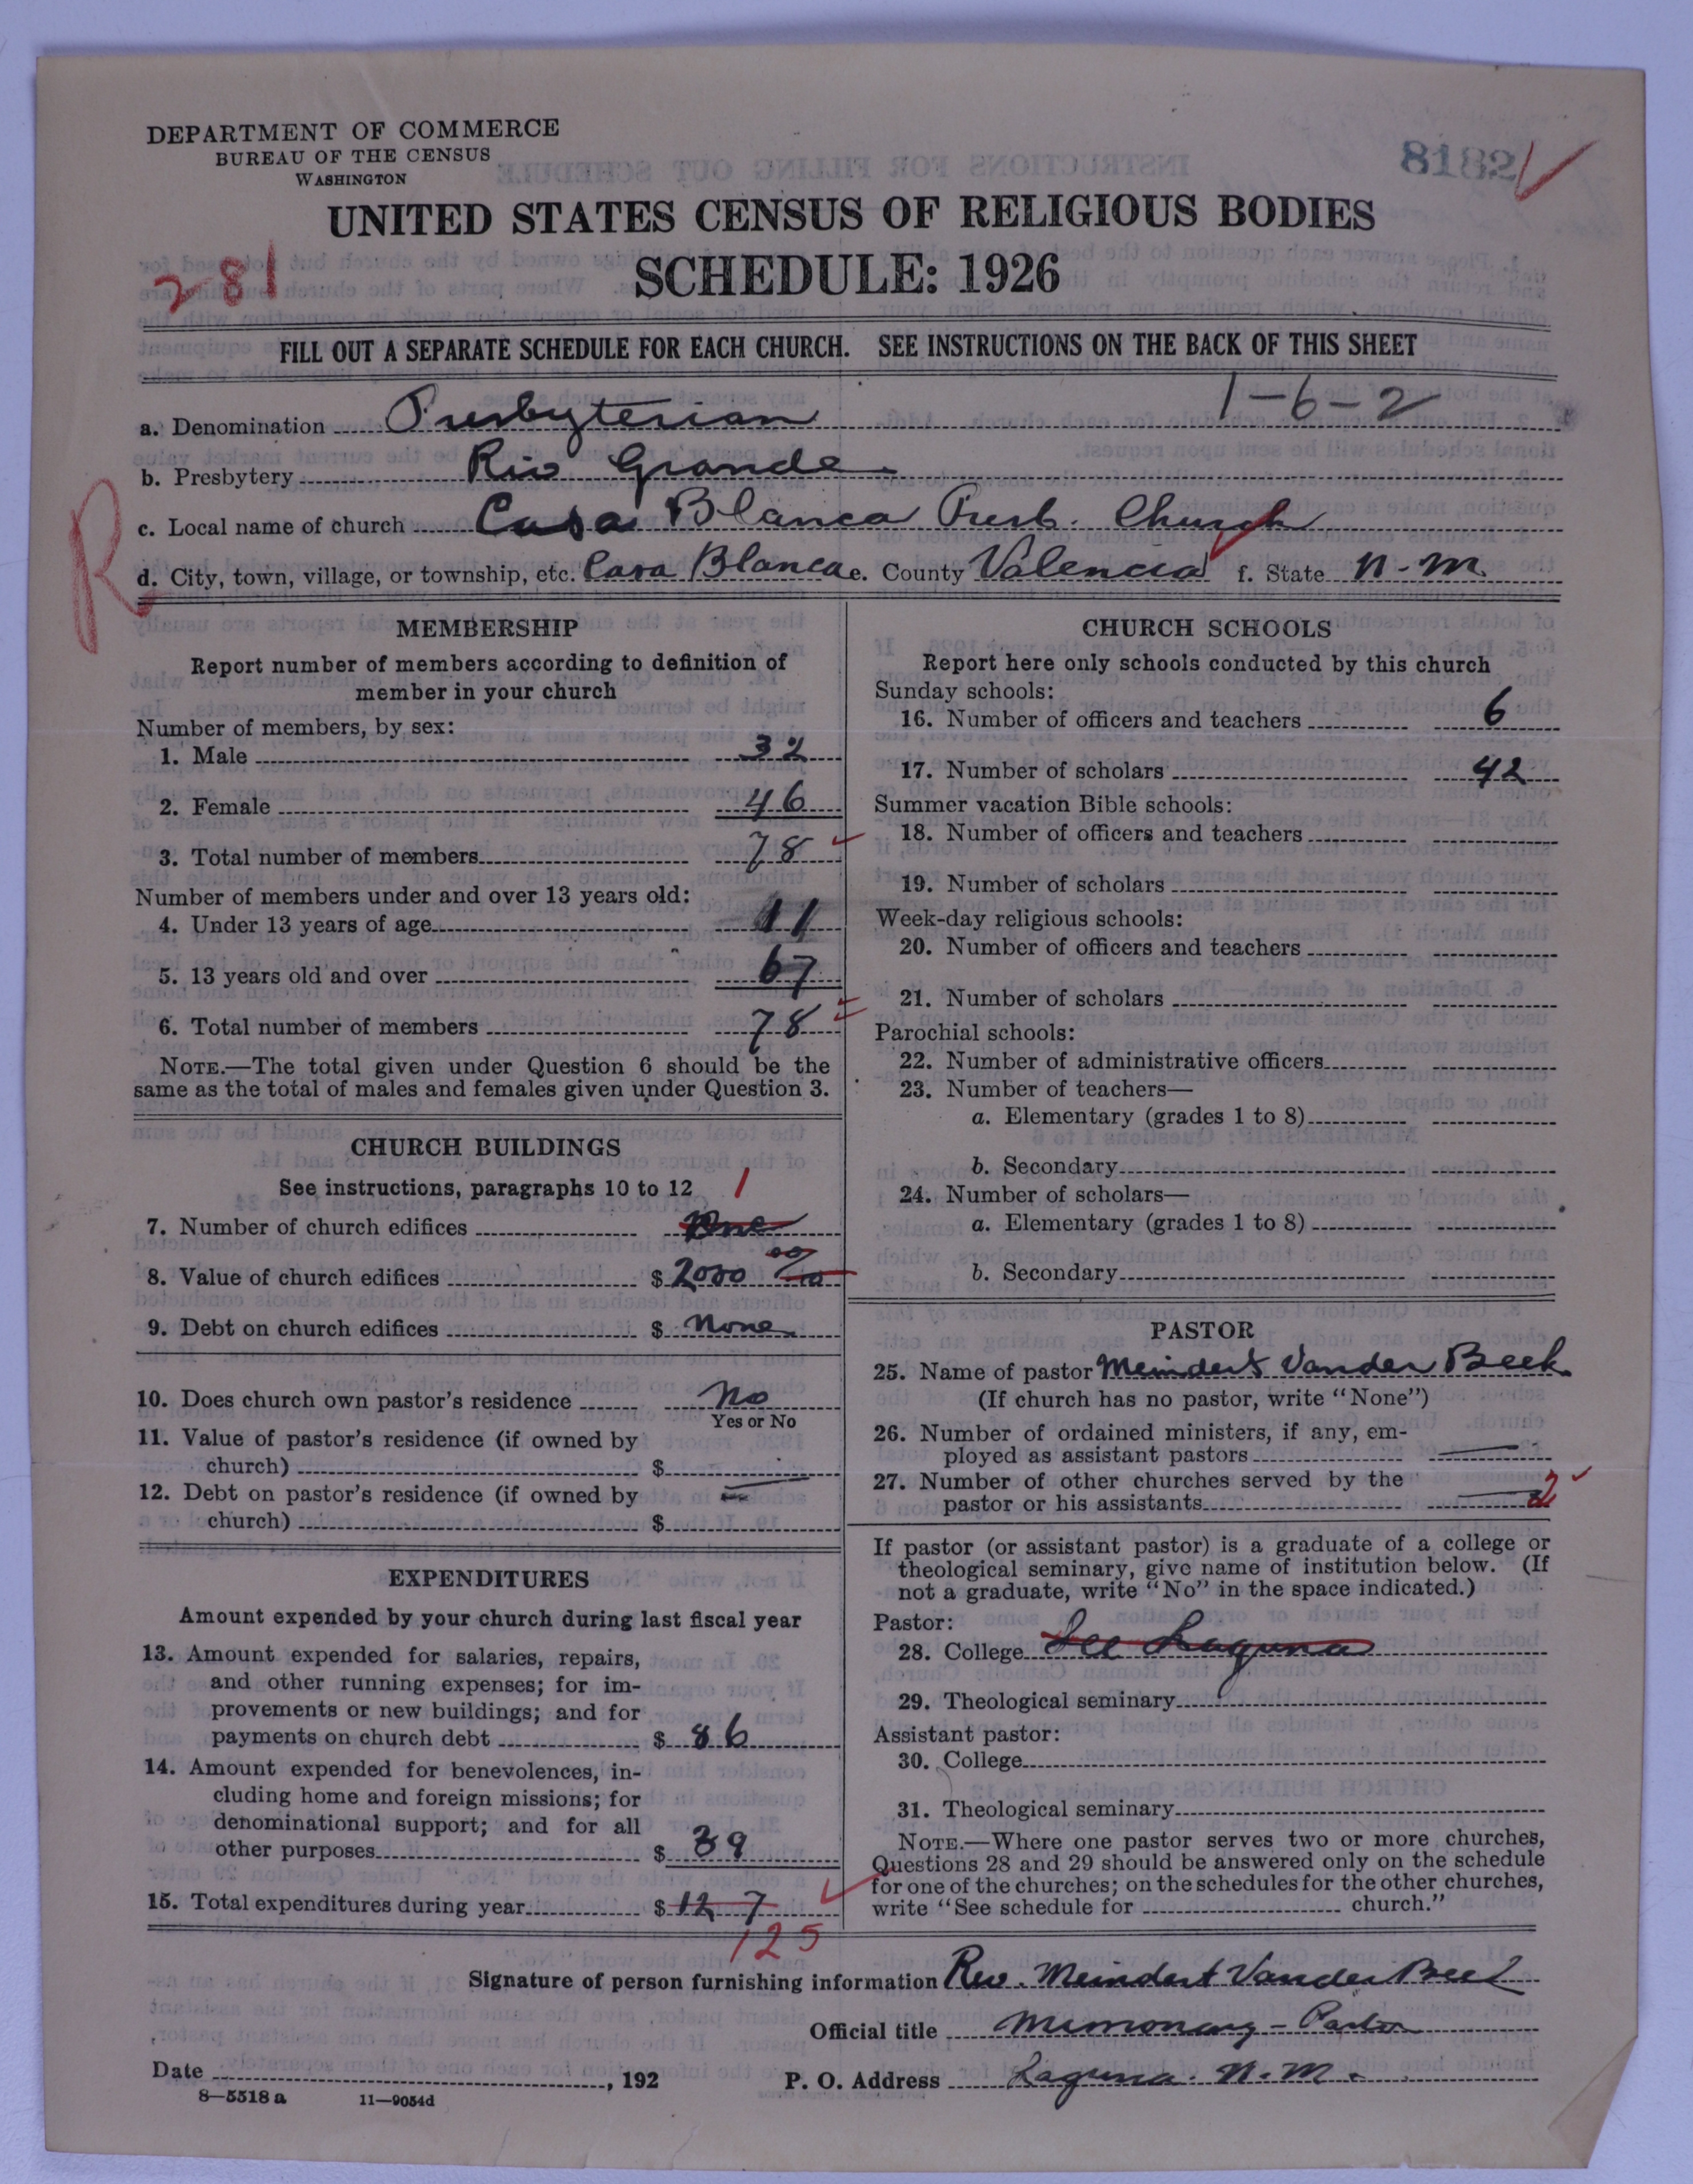 DEPARTMENT OF COMMERCE
BUREAU OF THE CENSUS
WASHINGTON
8182
UNITED STATES CENSUS OF RELIGIOUS BODIES
281
SCHEDULE: 1926
FILL OUT A SEPARATE SCHEDULE FOR EACH CHURCH. SEE INSTRUCTIONS ON THE BACK OF THIS SHEET
1-6-2
a. Denomination Presbyterian
b. Presbytery Rio Grande
c. Local name of church Casa Blanca Presb. Church
R
d. City, town, village, or township, etc. Casa Blanca e. County Valencia f. State N. M.
MEMBERSHIP
Report number of members according to definition of
member in your church
Number of members, by sex:
1. Male 32
2. Female 46
3. Total number of members 78
Number of members under and over 13 years old:
4. Under 13 years of age 11
5. 13 years old and over 67
6. Total number of members 78
NOTE.—The total given under Question 6 should be the
same as the total of males and females given under Question 3.
CHURCH BUILDINGS
See instructions, paragraphs 10 to 12
1
7. Number of church edifices One
8. Value of church edifices $ 2000 00
9. Debt on church edifices $ None
10. Does church own pastor's residence No
Yes or No
11. Value of pastor's residence (if owned by
church) $
12. Debt on pastor's residence (if owned by
church) $
EXPENDITURES
Amount expended by your church during last fiscal year
13. Amount expended for salaries, repairs,
and other running expenses; for im-
provements or new buildings; and for
payments on church debt $ 86
14. Amount expended for benevolences, in-
cluding home and foreign missions; for
denominational support; and for all
other purposes $ 39
15. Total expenditures during year $ 127
125
CHURCH SCHOOLS
Report here only schools conducted by this church
Sunday schools:
16. Number of officers and teachers 6
17. Number of scholars 42
Summer vacation Bible schools:
18. Number of officers and teachers
19. Number of scholars
Week-day religious schools:
20. Number of officers and teachers
21. Number of scholars
Parochial schools:
22. Number of administrative officers
23. Number of teachers—
a. Elementary (grades 1 to 8)
b. Secondary
24. Number of scholars—
a. Elementary (grades 1 to 8)
b. Secondary
PASTOR
25. Name of pastor Meindert Vander Beek
(If church has no pastor, write "None")
26. Number of ordained ministers, if any, em-
ployed as assistant pastors
27. Number of other churches served by the
pastor or his assistants 2
If pastor (or assistant pastor) is a graduate of a college or
theological seminary, give name of institution below. (If
not a graduate, write "No" in the space indicated.)
Pastor:
28. College See Laguna
29. Theological seminary
Assistant pastor:
30. College
31. Theological seminary
NOTE.—Where one pastor serves two or more churches,
Questions 28 and 29 should be answered only on the schedule
for one of the churches; on the schedules for the other churches,
write "See schedule for church."
Signature of person furnishing information Rev. Meindert Vander Beek
Official title Missionary - Pastor
Date , 192
P. O. Address Laguna. N. M.
8—5518 a 11—9054d